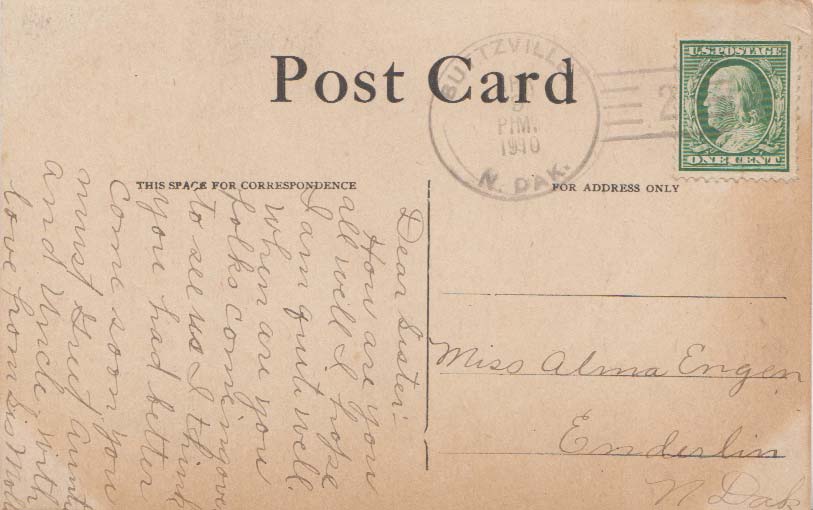 Post Card
BUTTZVILLE
9
P.M.
1910
N. DAK.
2
U.S. POSTAGE
ONE CENT
THIS SPACE FOR CORRESPONDENCE
FOR ADDRESS ONLY
Dear Sister!
How are you
all well I hope
I am quit well.
when are you
folks coming over
to see us I think
you had better
come soon you
must Greet Aunt
and Uncle with
love from Sis
Miss Alma Engen
Enderlin
N Dak